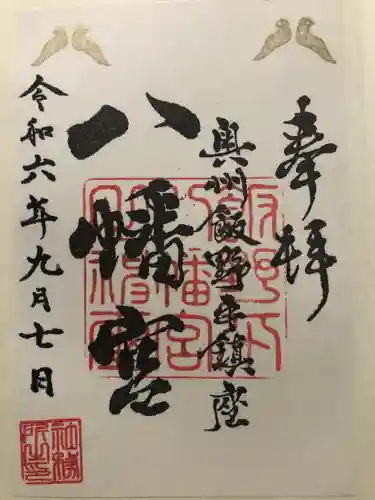 奉拝
奥州飯野平鎮座
八幡宮
令和六年九月七日